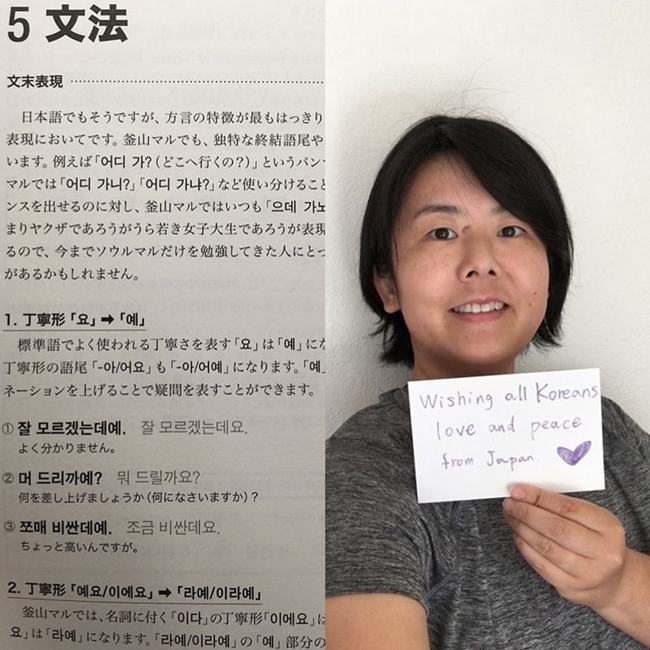 5 文法
文末表現
日本語でもそうですが、方言の特徴が最もはっきり
表現においてです。釜山マルでも、独特な終結語尾や
います。例えば「어디 가?(どこへ行くの?)」というパン
マルでは「어디 가니?」「어디 가냐?」など使い分けること
ンスを出せるのに対し、釜山マルではいつも「으데 가노
まりヤクザであろうがうら若き女子大生であろうが表現
るので、今までソウルマルだけを勉強してきた人にとっ
があるかもしれません。
1. 丁寧形「요」➡「예」
標準語でよく使われる丁寧さを表す「요」は「예」にな
丁寧形の語尾「-아/어요」も「-아/어예」になります。「예」
ネーションを上げることで疑問を表すことができます。
① 잘 모르겠는데예. 잘 모르겠는데요.
よく分かりません。
② 머 드리까예? 뭐 드릴까요?
何を差し上げましょうか(何になさいますか)?
③ 쪼매 비싼데예. 조금 비싼데요.
ちょっと高いんですが。
2. 丁寧形「예요/이에요」➡「라예/이라예」
釜山マルでは、名詞に付く「이다」の丁寧形「이에요」は
요」は「라예」になります。「라예/이라예」の「예」部分の
Wishing all Koreans
love and peace
from Japan.